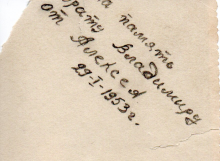 а память
брату Владимиру
от Алексея
29-I-1953г.